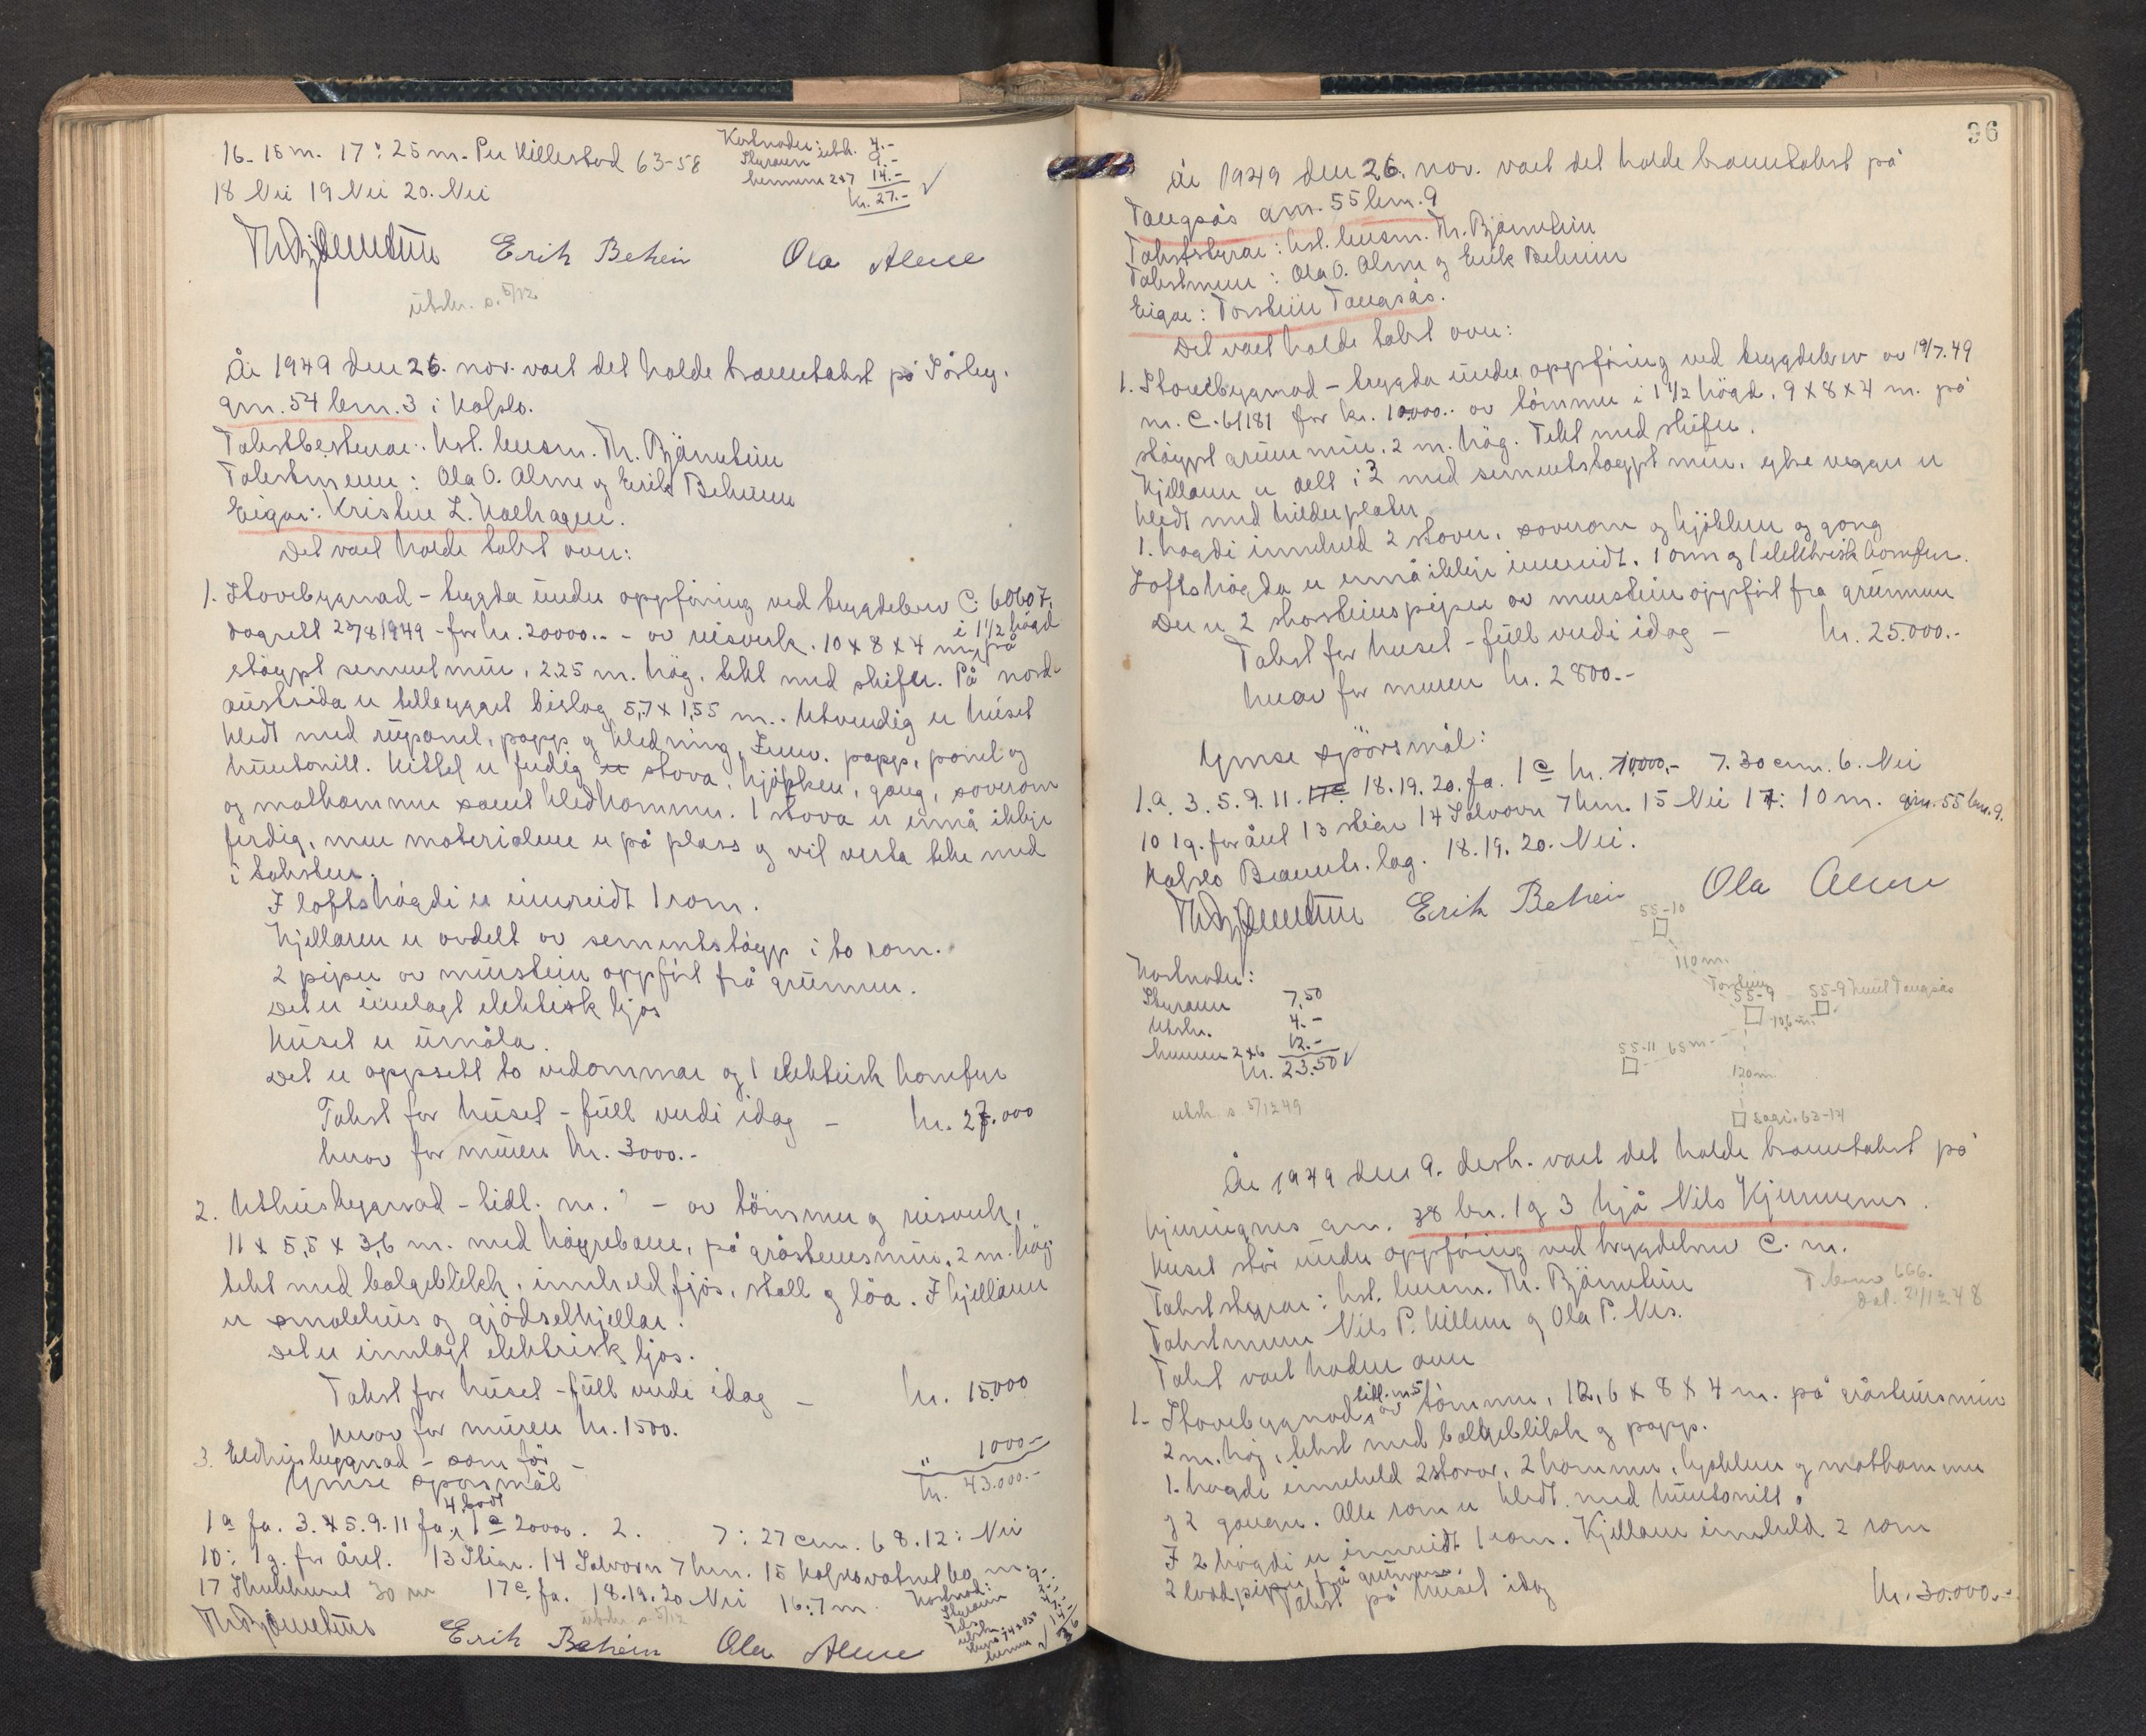 16. 15 m. 17: 25 m. Per Hillestad 63-58
18 Nei 19 Nei 20. Nei
Kostnader: utskr. 4.-
Styraren 9.-
2x7 14.-
kr. 27.-
Erik Behein Ola Alme
utskr. s. 5/12
År 1949 den 26. nov. vart det halde branntakst på Sørbey.
gnr. 54 bnr. 3 i Kalslo.
Takstbestyrar: hst. lensm. Th. Bjørnetun
Takstmenn: Ola O. Alme og Erik Behein
Eigar: Kristen L.
Det vart halde takst over:
1. Stovebygnad - bygda under oppføring ved bygdebrev C. 60607.
dagsett 23/8 1949 - for kr. 20000.- - av reisverk. 10 x 8 x 4 m, i 1 1/2 høgd på
støypt sementmur, 2,25 m. høg, tekt med skifer. På nord-
austsida er tillbygget bislag 5,7 x 1,55 m. Utvendig er huset
kledt med rupanel, papp og kledning. Innv. papp, panel og
huntonitt. Hittil er ferdig stova, kjøkken, gang, soverom
og matkammer samt kledkammer. 1 stova er ennå ikkje
ferdig, men materialene er på plass og vil verta teke med
i taksten.
I loftshøgdi er innreidt 1 rom.
Kjellaren er avdelt av sementstøyp i to rom.
2 piper av murstein oppført frå grunnen.
Det er innlagt elektrisk ljos
Huset er umåla.
Det er oppsett to vedomnar og 1 elektrisk komfyr
Takst for huset - full verdi idag - kr. 27.000
herav for muren kr. 3000.-
2. Uthusbygnad - tidl. nr. ? - av tømmer og reisverk,
11 x 5,5 x 3,6 m. med høgrebane, på gråsteinsmur, 2 m. høg
tekt med bølgeblikk, innheld fjøs, stall og løa. I kjellaren
er smalehus og gjødselkjellar.
Det er innlagt elektrisk ljos.
Takst for huset - full verdi idag - kr. 15000
herav for muren kr. 1500.
3. Eldhusbygnad - som før - " 1000.-
Ymse spørsmål kr. 43.000.-
1 a fa. 3. 4 5. 9. 11 fa. 4 bodt 1 e 20000. 2. 7: 27 cm. 6 8. 12: Nei
10: 1 g. for året. 13 Stige. 14 Salvorn 7 km. 15 Kalslovatnet 60 m.
17 30 m 17 e fa. 18. 19. 20 Nei 16: 7 m.
Kostnad: 9.-
Styraren
utskr.
utskr. s. 5/12
Erik Behein Ola Alme
96
År 1949 den 26. nov. vart det halde branntakst på
Taugsås gnr. 55 bnr. 9
Takststyrar: hst. lensm. Th. Bjørnetun
Takstmenn: Ola O. Alme og Erik Behein
Eigar: Torstein Taugsås.
Det vart halde takst over:
1. Stovebygnad - bygda under oppføring ved bygdebrev av 19/7. 49
nr. C. 61181 for kr. 10000.- av tømmer i 1 1/2 høgd. 9 x 8 x 4 m. på
støypt grunnmur, 2 m. høg. Tekt med skifer.
Kjellaren er delt i 2 med sementstøypt mur, ytre veggen er
kledt med
1. høgdi inneheld 2 stover, soverom og kjøkken og gang
Loftshøgda er ennå ikkje innreidt. 1 omn og 1 elektrisk komfyr.
Der er 2 skorsteinspiper av murstein oppført fra grunnen
Takst for huset - full verdi idag - kr. 25.000.-
herav for muren kr. 2800.-
Ymse spørsmål:
1. a. 3. 5. 9. 11. 18. 19. 20. fa. 1 e kr. 10000.- 7. 30 cm. 6. Nei
10 1 g. for året 13 stige 14 Salvorn 7 km. 15 Nei 17: 10 m. gnr. 55 bnr. 9.
Kalslo Brannk. lag. 18. 19. 20. Nei.
Erik Behein Ola Alme
55-10
110 m.
Kostnader:
Styraren 7,50
Utskr. 4.-
2x6 12.-
kr. 23.50
Torstein
55-9
55-9 Taugsås
106 m.
55-11 65 m
120 m.
Sagi. 63-14
utsk. s. 5/12 49
År 1949 den 9. desbr. vart det halde branntakst på
gnr. 38 bnr. 1 og 3 hjå Nils
Huset står under oppføring ved bygdebrev C. nr.
666.
dat. 21/12 48
Takststyrar: hst. lensm. Th. Bjørnetun
Takstmenn Nils P. Hillern og Ola P. Nes.
Takst vart halden over
1. Stovebygnad, tidl. nr 5 av tømmer, 12,6 x 8 x 4 m. på gråsteinsmur
2 m. høg, tekt med bølgeblikk og papp.
1. høgdi inneheld 2 stover, 2 kammer, kjøkken og matkammer
og 2 ganger. Alle rom er kledt med huntonitt.
I 2 høgdi er innreidt 1 rom. Kjellaren inneheld 2 rom
2 frå grunnen.
Takst på huset idag kr. 30.000.-